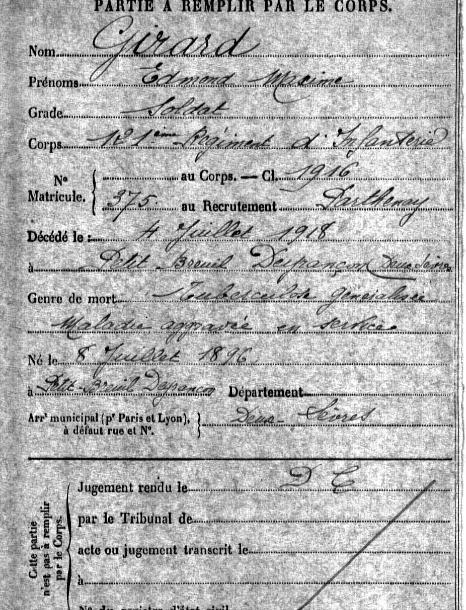 PARTIE À REMPLIR PAR LE CORPS.
Nom Girard
Prénoms Edmond Maxime
Grade Soldat
Corps 121ème Régiment d'Infanterie
N° Matricule. { au Corps. — Cl. 1916
375 au Recrutement Parthenay
Décédé le : 4 Juillet 1918
à Petit Breuil Desfrancon Deux Sèvres
Genre de mort Tuberculose généralisée
Maladie aggravée en service
Né le 8 Juillet 1896
à Petit Breuil Département
Arrt municipal (pr Paris et Lyon), à défaut rue et N°. } Deux Sèvres
Cette partie n'est pas à remplir par le Corps.
Jugement rendu le D C
par le Tribunal de
acte ou jugement transcrit le
à
N° du registre d'état civil